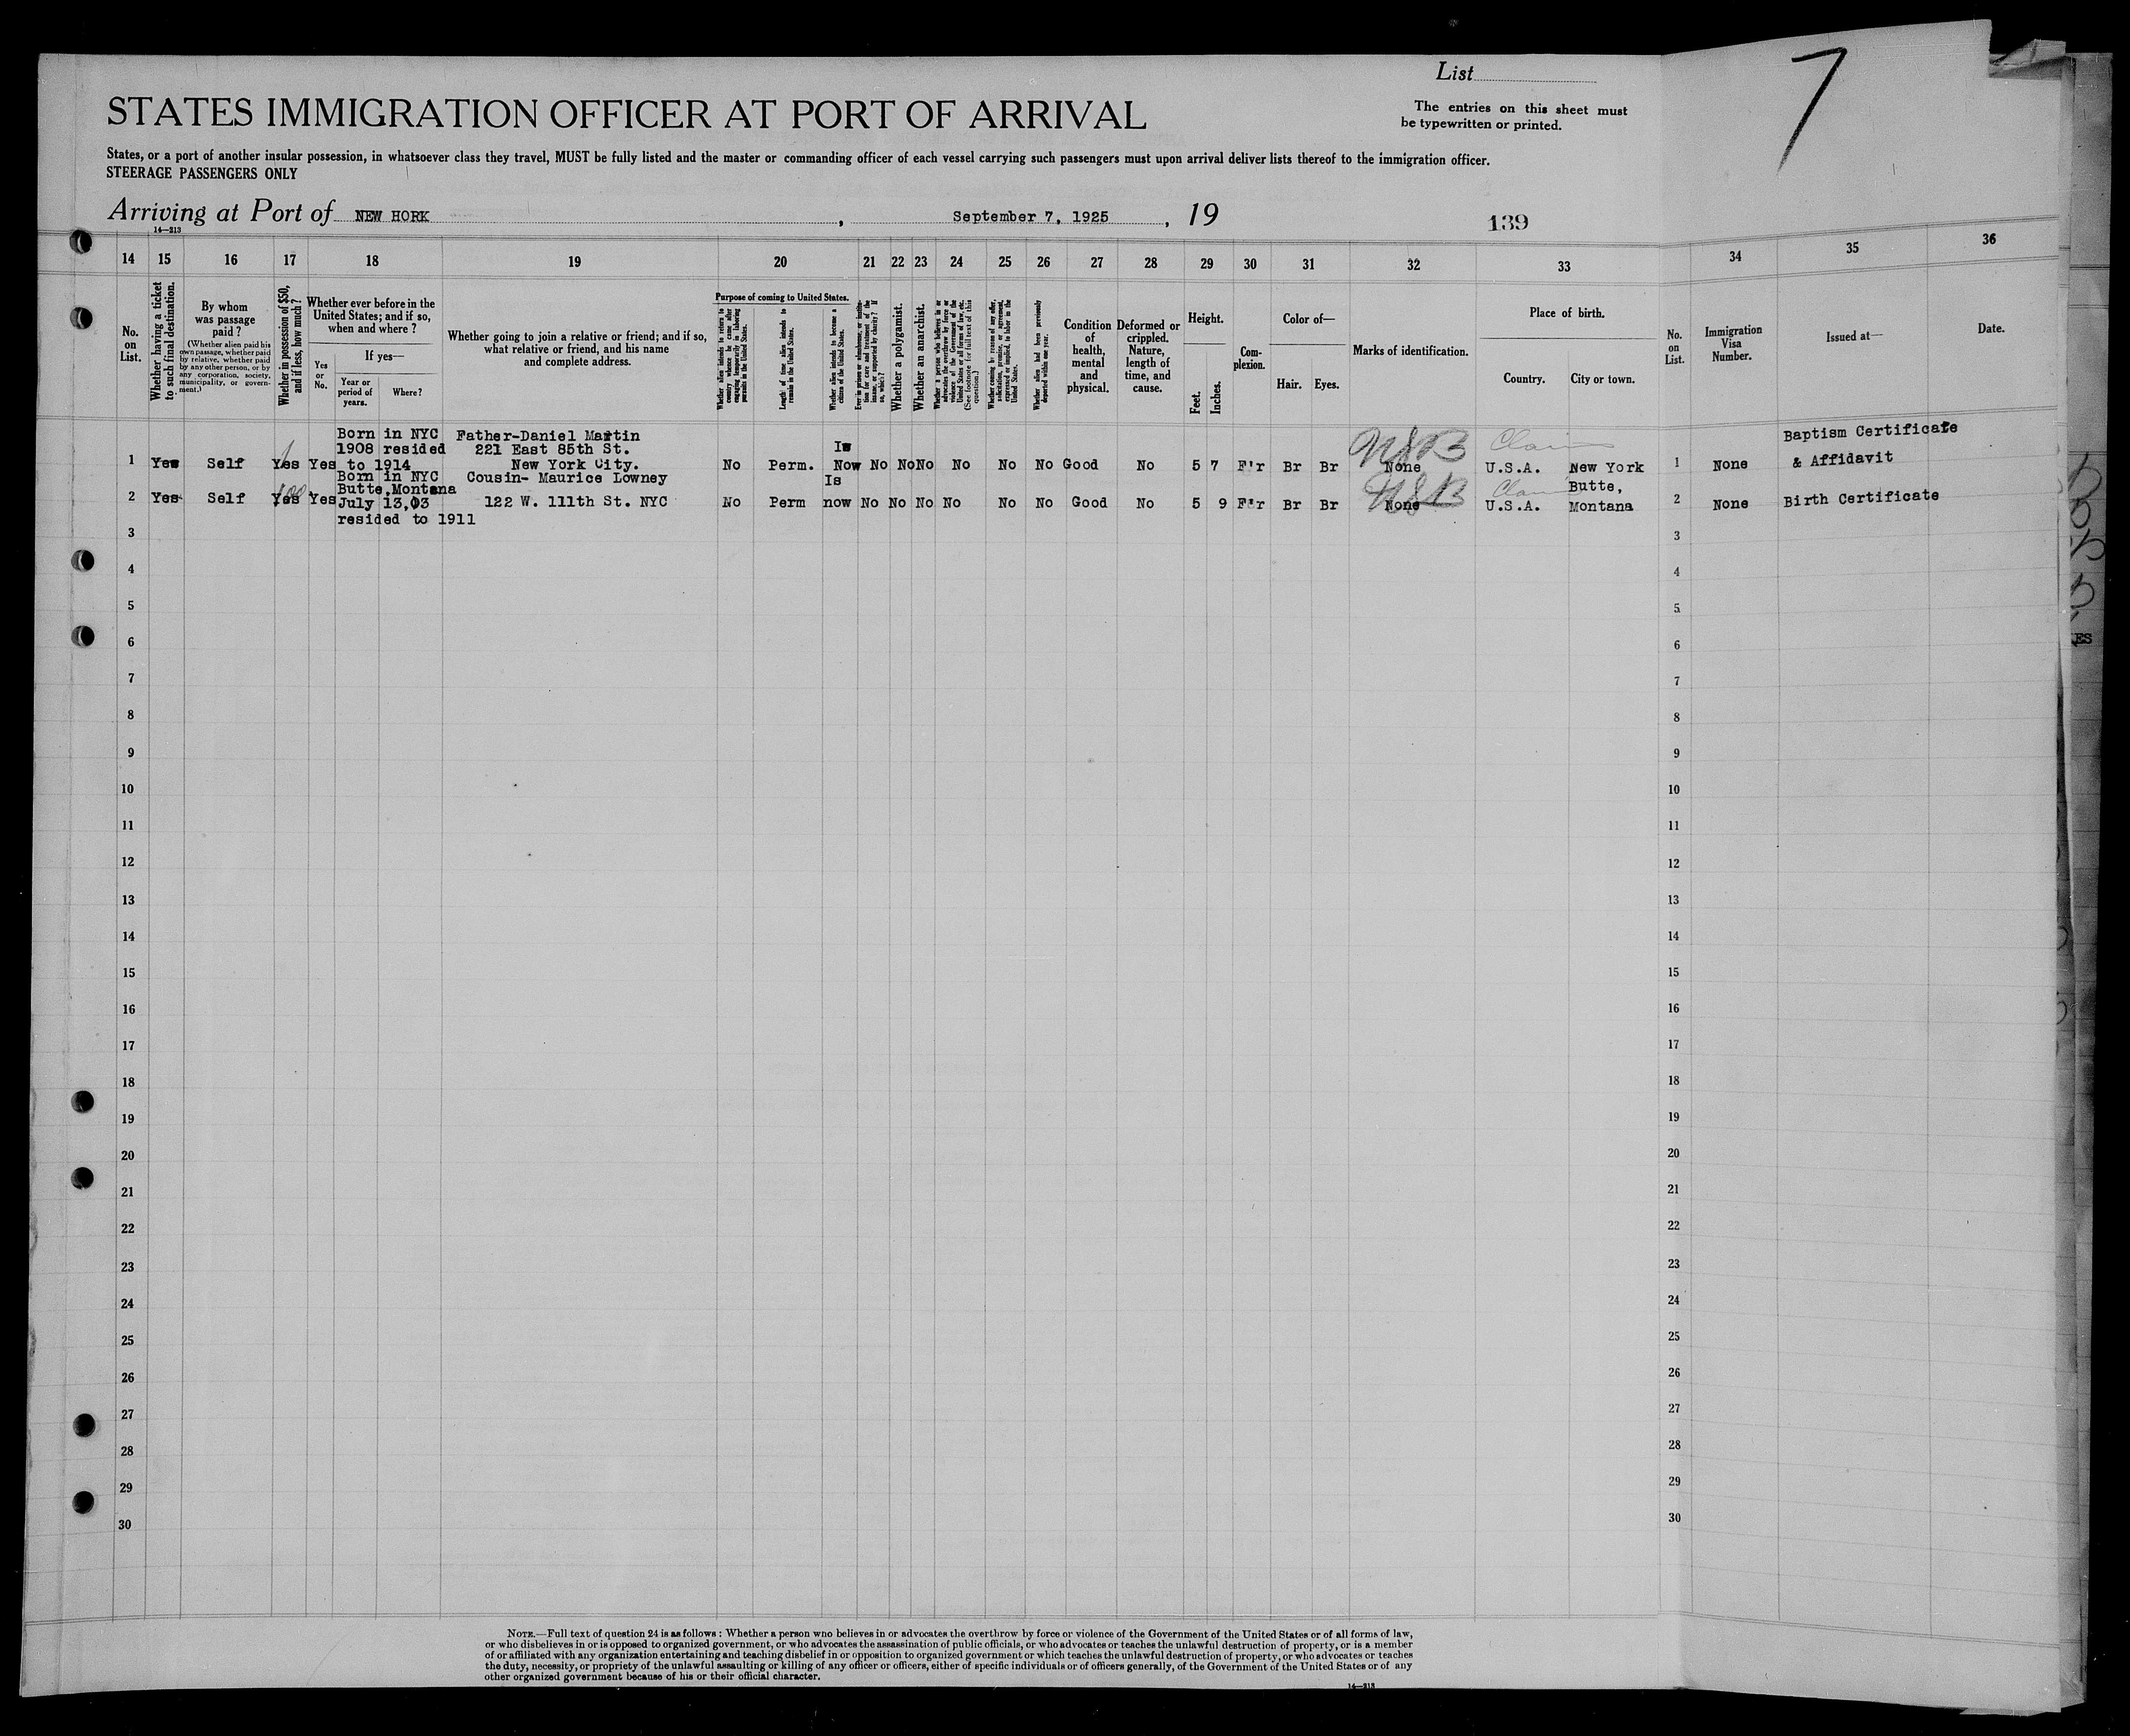 7
List
STATES IMMIGRATION OFFICER AT PORT OF ARRIVAL
The entries on this sheet must
be typewritten or printed.
States, or a port of another insular possession, in whatsoever class they travel, MUST be fully listed and the master or commanding officer of each vessel carrying such passengers must upon arrival deliver lists thereof to the immigration officer.
STEERAGE PASSENGERS ONLY
Arriving at Port of NEW HORK, September 7, 1925, 19
14—213
139
14 15 16 17 18 19 20 21 22 23 24 25 26 27 28 29 30 31 32 33 34 35 36
No. on List.
Whether having a ticket to such final destination.
By whom was passage paid?
(Whether alien paid his own passage, whether paid by relative, whether paid by any other person, or by any corporation, society, municipality, or government.)
Whether in possession of $50, and if less, how much?
Whether ever before in the United States; and if so, when and where?
Yes or No.
If yes—
Year or period of years.
Where?
Whether going to join a relative or friend; and if so, what relative or friend, and his name and complete address.
Purpose of coming to United States.
Whether alien intends to return to country whence he came after engaging temporarily in laboring pursuits in the United States.
Length of time alien intends to remain in the United States.
Whether alien intends to become a citizen of the United States.
Ever in prison or almshouse, or institution for care and treatment of the insane, or supported by charity? If so, which?
Whether a polygamist.
Whether an anarchist.
Whether a person who believes in or advocates the overthrow by force or violence of the Government of the United States or all forms of law, etc. (See footnote for full text of this question.)
Whether coming by reason of any offer, solicitation, promise, or agreement, expressed or implied, to labor in the United States.
Whether alien had been previously deported within one year.
Condition of health, mental and physical.
Deformed or crippled. Nature, length of time, and cause.
Height.
Feet.
Inches.
Complexion.
Color of—
Hair.
Eyes.
Marks of identification.
Place of birth.
Country.
City or town.
No. on List.
Immigration Visa Number.
Issued at—
Date.
Born in NYC Father-Daniel Martin Baptism Certificate
1908 resided 221 East 85th St. Is
1 Yes Self Yes Yes to 1914 New York City. No Perm. Now No No No No No No Good No 5 7 F'r Br Br None U.S.A. New York 1 None & Affidavit
Born in NYC Cousin- Maurice Lowney Is
Butte,Montana Butte,
2 Yes Self Yes Yes July 13,03 122 W. 111th St. NYC No Perm now No No No No No No Good No 5 9 F'r Br Br None U.S.A. Montana 2 None Birth Certificate
resided to 1911
3 3
4 4
5 5
6 6
7 7
8 8
9 9
10 10
11 11
12 12
13 13
14 14
15 15
16 16
17 17
18 18
19 19
20 20
21 21
22 22
23 23
24 24
25 25
26 26
27 27
28 28
29 29
30 30
NOTE.—Full text of question 24 is as follows: Whether a person who believes in or advocates the overthrow by force or violence of the Government of the United States or of all forms of law,
or who disbelieves in or is opposed to organized government, or who advocates the assassination of public officials, or who advocates or teaches the unlawful destruction of property, or is a member
of or affiliated with any organization entertaining and teaching disbelief in or opposition to organized government or which teaches the unlawful destruction of property, or who advocates or teaches
the duty, necessity, or propriety of the unlawful assaulting or killing of any officer or officers, either of specific individuals or of officers generally, of the Government of the United States or of any
other organized government because of his or their official character.
14—213